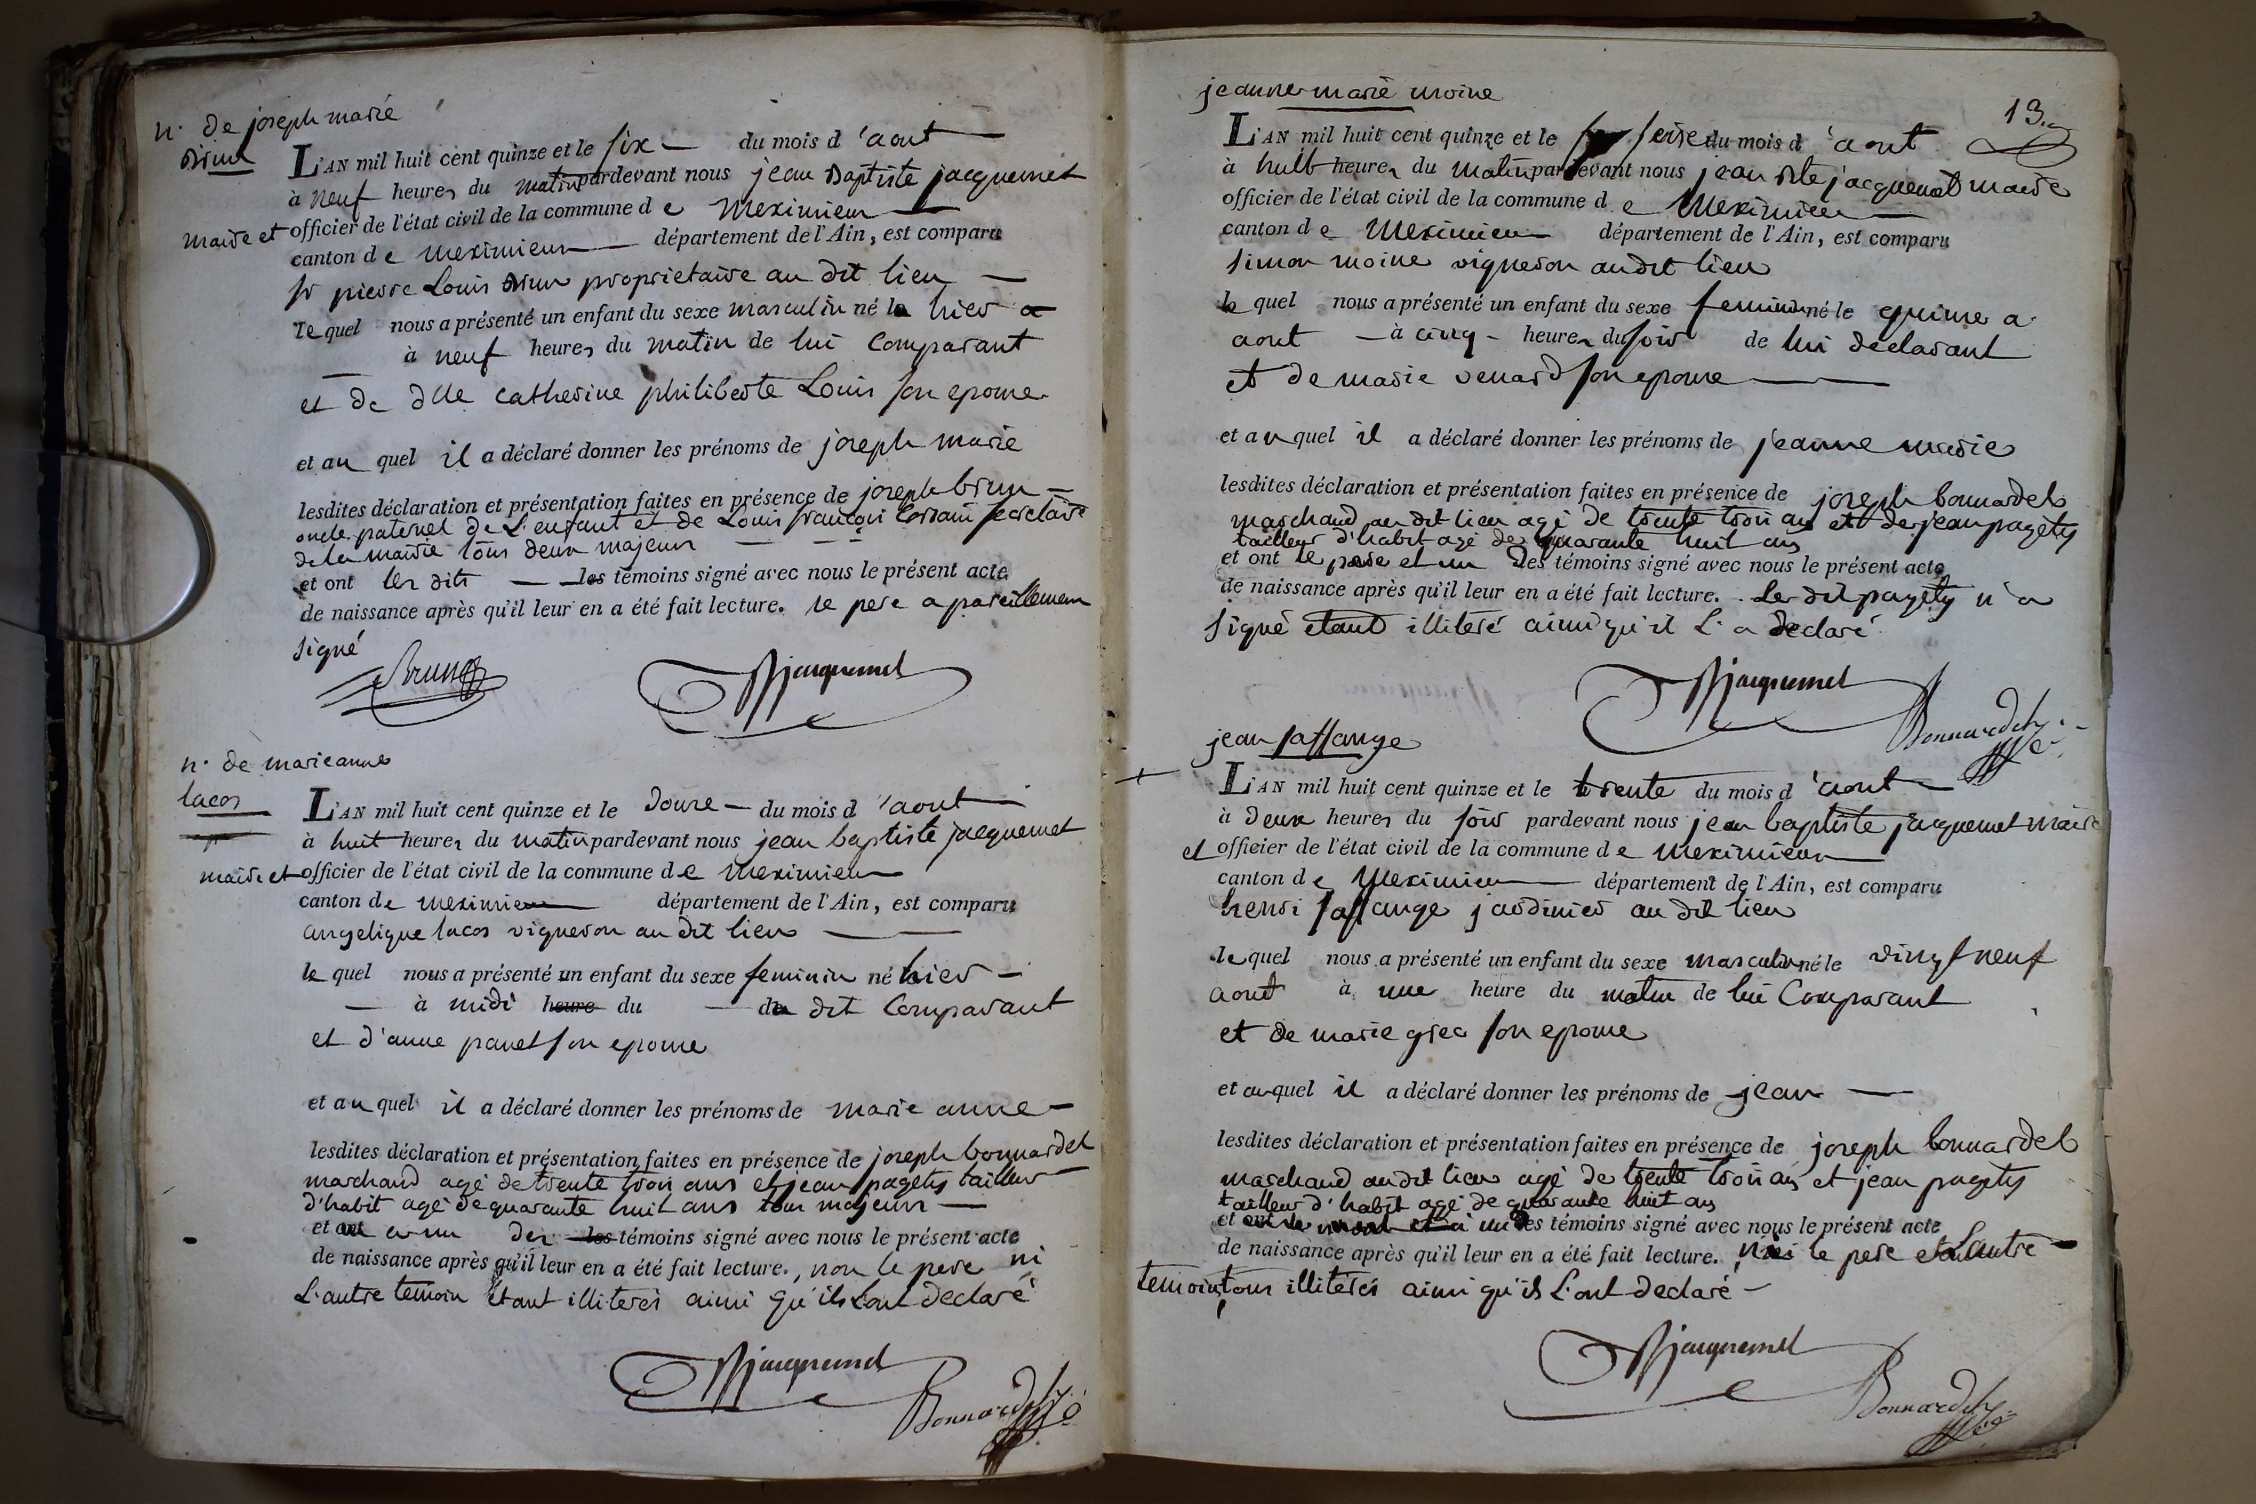 n. de joseph marie
Brun
L'AN mil huit cent quinze et le six du mois d'aout
à neuf heures du matin pardevant nous jean Baptiste jacquemet
maire et officier de l'état civil de la commune de meximieux
canton de meximieux département de l'Ain, est comparu
sr pierre Louis Brun proprietaire au dit lieu
le quel nous a présenté un enfant du sexe masculin né le hier a
à neuf heures du matin de lui Comparant
et de dlle catherine philiberte Louis son epouse
et au quel il a déclaré donner les prénoms de joseph marie
lesdites déclaration et présentation faites en présence de joseph brun
oncle paternel de L'enfant et de Louis françois secretaire
de la mairie tous deux majeurs
et ont les dits les témoins signé avec nous le présent acte
de naissance après qu'il leur en a été fait lecture. le pere a pareillement
signé
Brun
Jacquemet
n. de marieanne
lacos
L'AN mil huit cent quinze et le douze du mois d'aout
à huit heures du matin pardevant nous jean baptiste jacquemet
maire et officier de l'état civil de la commune de meximieux
canton de meximieux département de l'Ain, est comparu
angelique lacos vigneron au dit lieu
le quel nous a présenté un enfant du sexe feminin né hier
à midi heure du du dit Comparant
et d'anne panet son epouse
et au quel il a déclaré donner les prénoms de marie anne
lesdites déclaration et présentation faites en présence de joseph bonnardel
marchand agé de trente trois ans et jean pagety tailleur
d'habit agé de quarante huit ans tous majeurs
et a un des les témoins signé avec nous le présent acte
de naissance après qu'il leur en a été fait lecture., non le pere ni
L'autre temoin etant illiterés ainsi qu'ils L'ont declaré
Jacquemet
Bonnardel
13.
jeanne marie moine
L'AN mil huit cent quinze et le seize du mois d'aout
à huit heures du matin pardevant nous jean Bte jacquemet maire
officier de l'état civil de la commune de Meximieux
canton de Meximieux département de l'Ain, est comparu
simon moine vigneron au dit lieu
le quel nous a présenté un enfant du sexe feminin né le quinze a
aout à cinq heures du soir de lui declarant
et de marie venard son epouse
et au quel il a déclaré donner les prénoms de jeanne marie
lesdites déclaration et présentation faites en présence de joseph bonnardel
marchand au dit lieu agé de trente trois ans et de jean pagety
tailleur d'habit agé de quarante huit ans
et ont le pere et un des témoins signé avec nous le présent acte
de naissance après qu'il leur en a été fait lecture. Le dit pagety n'a
signé etant illiteré ainsi qu'il L'a declaré
Jacquemet
Bonnardel
jean saffange
L'AN mil huit cent quinze et le trente du mois d'aout
à deux heures du soir pardevant nous jean baptiste jacquemet maire
et officier de l'état civil de la commune de meximieux
canton de Meximieux département de l'Ain, est comparu
henri saffange jardinier au dit lieu
le quel nous a présenté un enfant du sexe masculin né le vingt neuf
aout à une heure du matin de lui Comparant
et de marie grec son epouse
et au quel il a déclaré donner les prénoms de jean
lesdites déclaration et présentation faites en présence de joseph bonnardel
marchand au dit lieu agé de trente trois ans et jean pagety
tailleur d'habit agé de quarante huit ans
et a un des témoins signé avec nous le présent acte
de naissance après qu'il leur en a été fait lecture. ni le pere et L'autre
temoin, tous illiterés ainsi qu'ils L'ont declaré
Jacquemet
Bonnardel